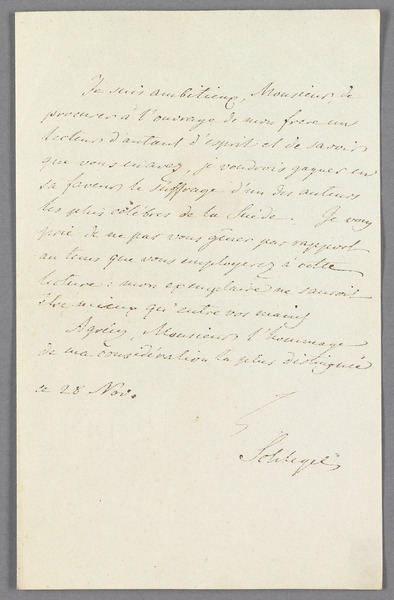 Je suis ambitieux, Monsieur, de
procurer à l'ouvrage de mon frere un
lecteur d'autant d'esprit et de savoir
que vous en avez, je voudrois gagner en
sa faveur le suffrage d'un des auteurs
les plus célèbres de la Suède. Je vous
prie de ne pas vous gêner par rapport
au tems que vous employerez à cette
lecture: mon exemplaire ne sauroit
être mieux qu'entre vos mains
Agréez, Monsieur, l'hommage
de ma considération la plus distinguée
ce 28 Nov.
Schlegel